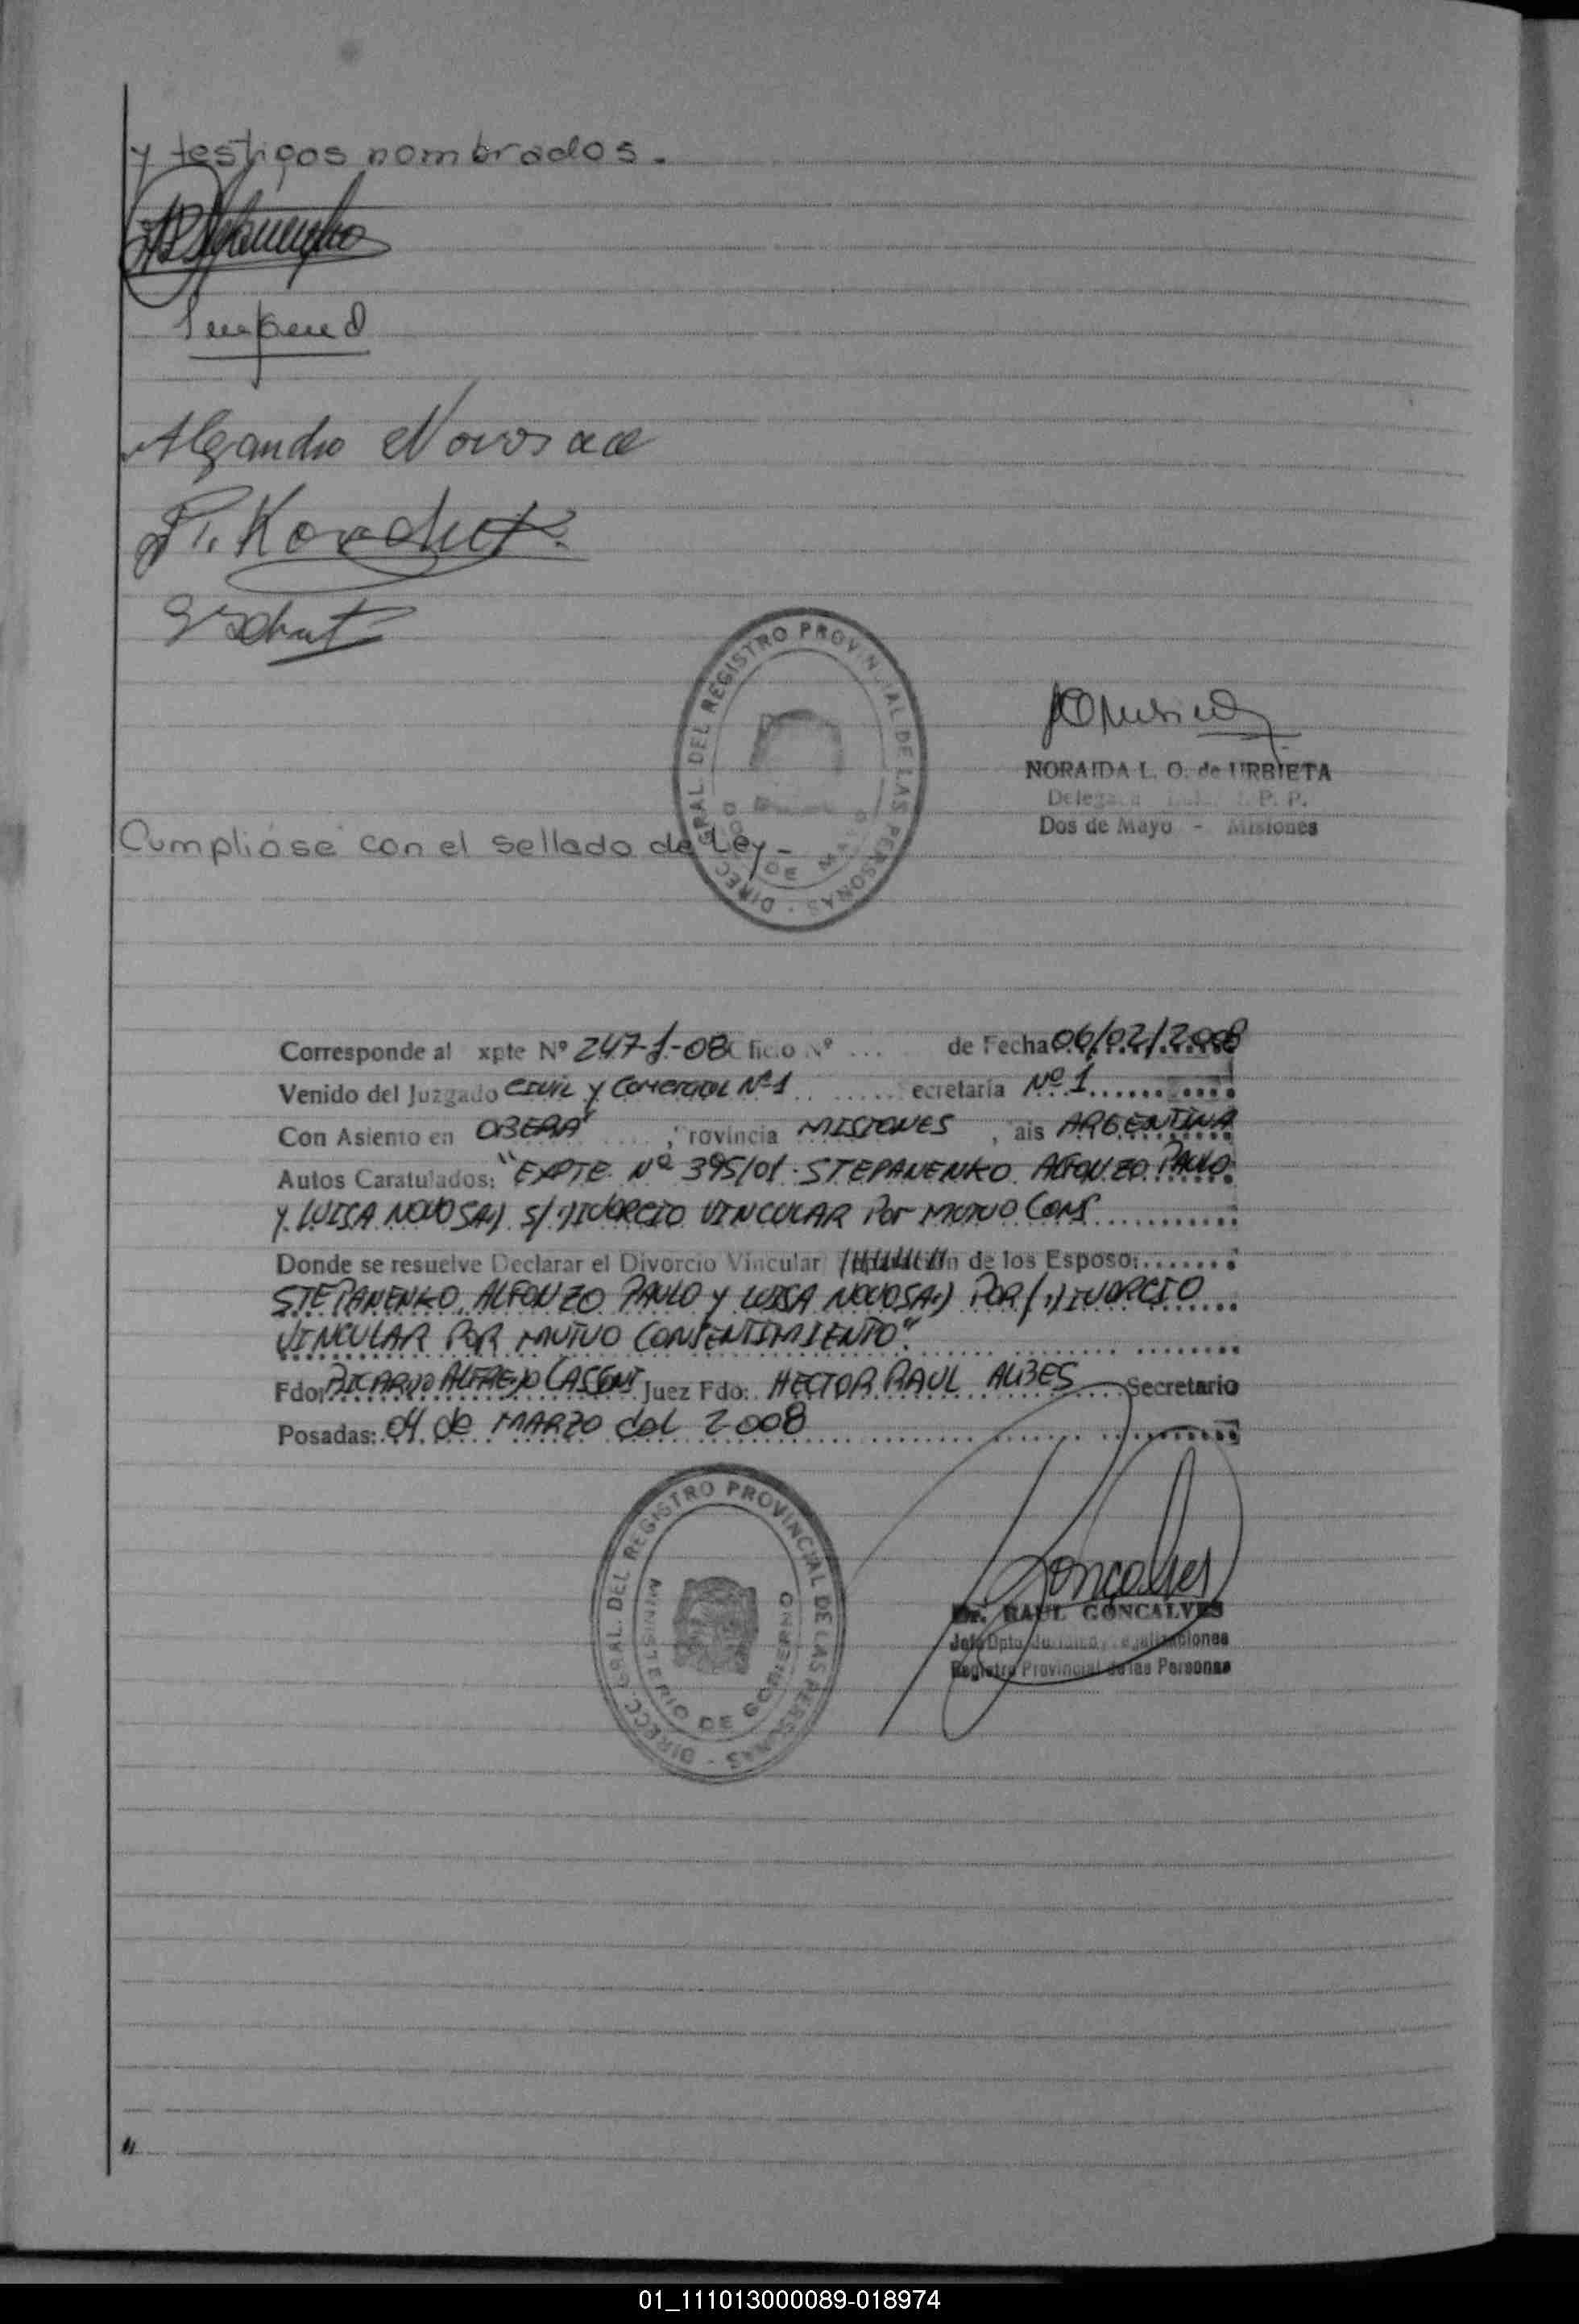 y testigos nombrados.
Alejandro Novosad
NORAIDA L. O. de URBIETA
Dos de Mayo - Misiones
DIRECC. GRAL. DEL REGISTRO PROVINCIAL DE LAS PERSONAS
DOS DE MAYO
Cumplióse con el sellado de Ley -
Corresponde al xpte Nº 247-J-08 ficio Nº ... de Fecha 06/02/2008
Venido del Juzgado CIVIL y COMERCIAL Nº 1 ecretaria Nº 1
Con Asiento en OBERA , rovincia MISIONES , ais ARGENTINA
Autos Caratulados: "EXPTE Nº 395/01. STEPANENKO ALFONZO PAULO
y LUISA NOVOSAD S/ DIVORCIO VINCULAR POR MUTUO CONS
Donde se resuelve Declarar el Divorcio Vincular de los Esposo:
STEPANENKO ALFONZO PAULO y LUISA NOVOSAD POR/ DIVORCIO
VINCULAR POR MUTUO CONSENTIMIENTO".
Fdo: RICARDO ALFREDO Juez Fdo: HECTOR RAUL ALBES Secretario
Posadas: 04 de MARZO del 2008
DIRECC. GRAL. DEL REGISTRO PROVINCIAL DE LAS PERSONAS
MINISTERIO DE GOBIERNO
Gonçalves
Dr. RAUL GONCALVES
Jefe Dpto. Juridico y Legalizaciones
Registro Provincial de las Personas
01_111013000089-018974